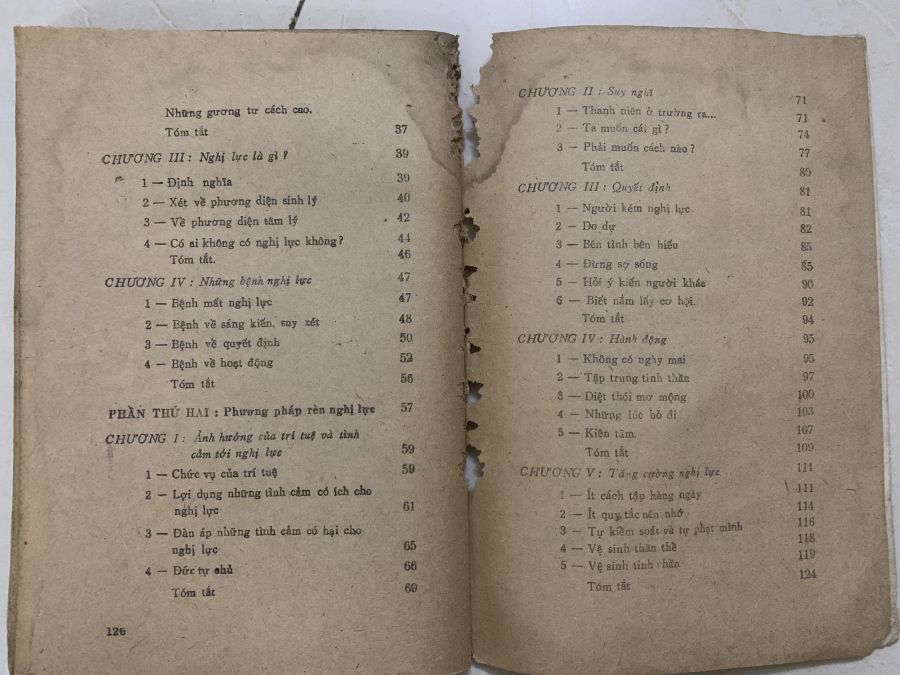 Những gương tư cách cao.
Tóm tắt 37
CHƯƠNG III : Nghị lực là gì ? 39
1 — Định nghĩa 39
2 — Xét về phương diện sinh lý 40
3 — Về phương diện tâm lý 42
4 — Có ai không có nghị lực không ? 44
Tóm tắt. 46
CHƯƠNG IV : Những bệnh nghị lực 47
1 — Bệnh mất nghị lực 47
2 — Bệnh về sáng kiến, suy xét 48
3 — Bệnh về quyết định 50
4 — Bệnh về hoạt động 52
Tóm tắt 56
PHẦN THỨ HAI : Phương pháp rèn nghị lực 57
CHƯƠNG I : Ảnh hưởng của trí tuệ và tình
cảm tới nghị lực 59
1 — Chức vụ của trí tuệ 59
2 — Lợi dụng những tình cảm có ích cho
nghị lực 61
3 — Đàn áp những tình cảm có hại cho
nghị lực 65
4 — Đức tự chủ 66
Tóm tắt 69
126
CHƯƠNG II : Suy nghĩ 71
1 — Thanh niên ở trường ra... 71
2 — Ta muốn cái gì ? 74
3 — Phải muốn cách nào ? 77
Tóm tắt 80
CHƯƠNG III : Quyết định 81
1 — Người kém nghị lực 81
2 — Do dự 82
3 — Bên tình bên hiếu 85
4 — Đừng sợ sống 85
5 — Hỏi ý kiến người khác 90
6 — Biết nắm lấy cơ hội. 92
Tóm tắt 94
CHƯƠNG IV : Hành động 95
1 — Không có ngày mai 95
2 — Tập trung tinh thần 97
3 — Diệt thói mơ mộng 100
4 — Những lúc bỏ đi 103
5 — Kiên tâm 107
Tóm tắt 109
CHƯƠNG V : Tăng cường nghị lực 111
1 — Ít cách tập hàng ngày 111
2 — Ít quy tắc nên nhớ 114
3 — Tự kiểm soát và tự phạt mình 116
4 — Vệ sinh thân thể 118
5 — Vệ sinh tinh thần 119
Tóm tắt 124